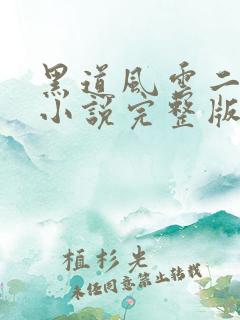 黑道风云二
小说完整版
植杉光
未经同意禁止转载